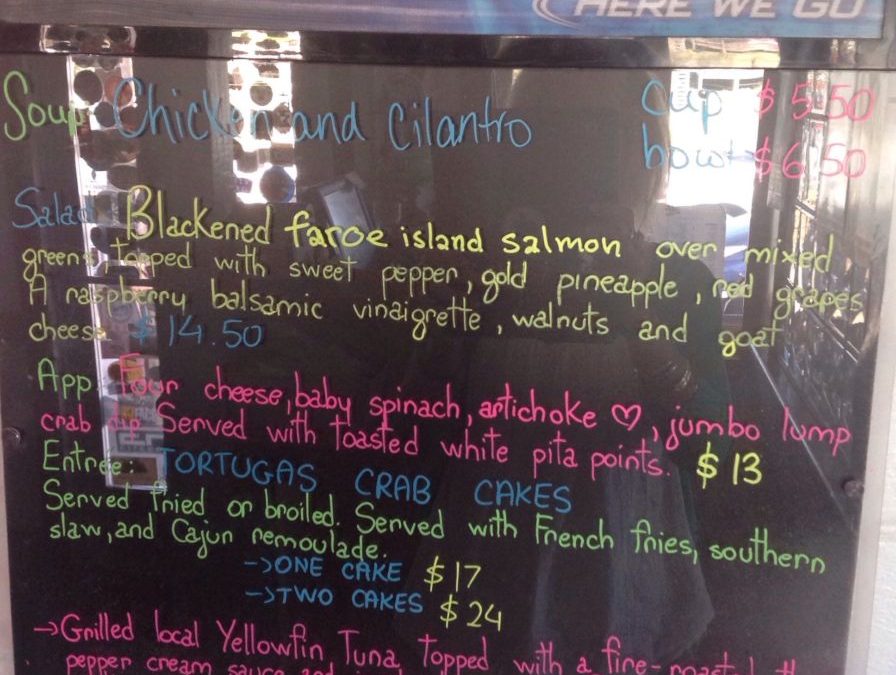 HERE WE GO
Soup Chicken and Cilantro cup $5.50
bowl $6.50
Salad Blackened faroe island salmon over mixed
greens, topped with sweet pepper, gold pineapple, red grapes
A raspberry balsamic vinaigrette, walnuts and goat
cheese $14.50
App Four cheese, baby spinach, artichoke ♡, jumbo lump
crab dip Served with toasted white pita points. $13
Entrée: TORTUGAS CRAB CAKES
Served fried or broiled. Served with French fries, southern
slaw, and Cajun remoulade.
->ONE CAKE $17
->TWO CAKES $24
->Grilled local Yellowfin Tuna topped with a fire-roasted
pepper cream sauce and